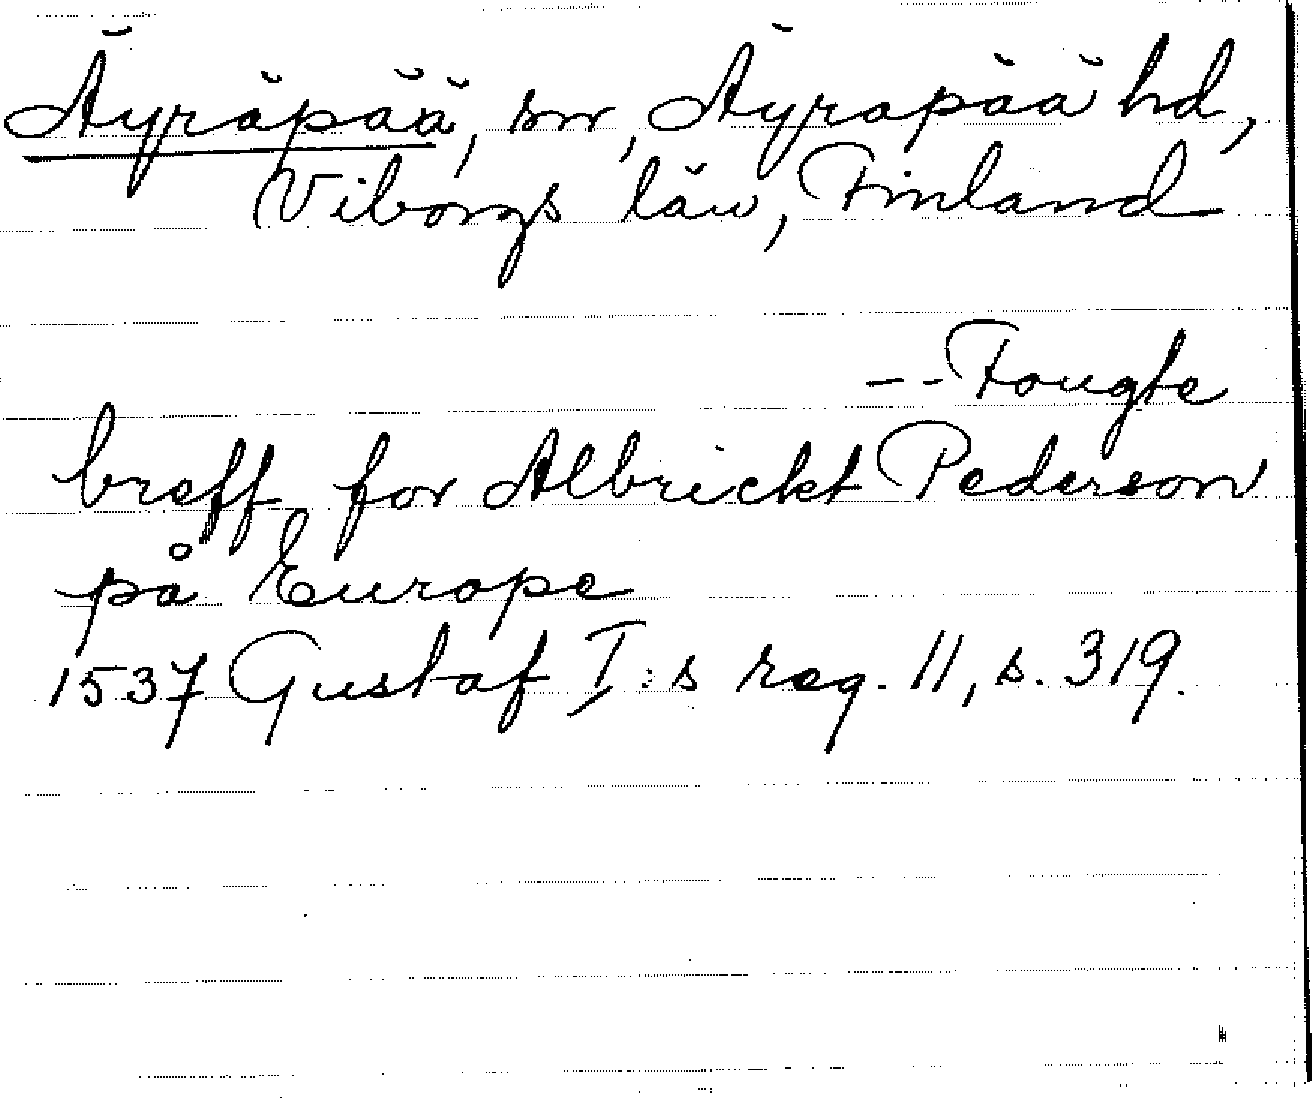 Äyräpää, sn, Äyräpää hd,
Viborgs län, Finland
-- Fougte
breff for Albrickt Pederson
på Europe
1537 Gustaf I:s reg. 11, s. 319.